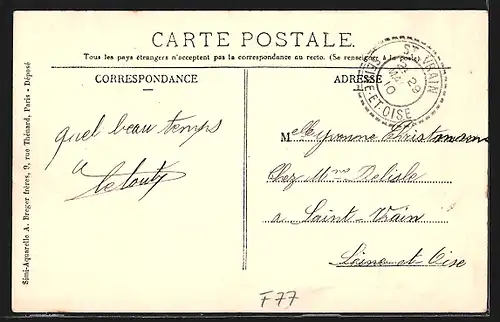 CARTE POSTALE.
Tous les pays étrangers n'acceptent pas la correspondance au recto. (Se renseigner à la poste).
CORRESPONDANCE
ADRESSE
ST VRAIN
29
MAI
10
SEINE-ET-OISE
quel beau temps
a
Melle Yvonne
Chez Mme Delisle
a Saint-Vrain
Seine et Oise
Simi-Aquarelle A. Breger frères, 9, rue Thénard, Paris - Déposé
F77